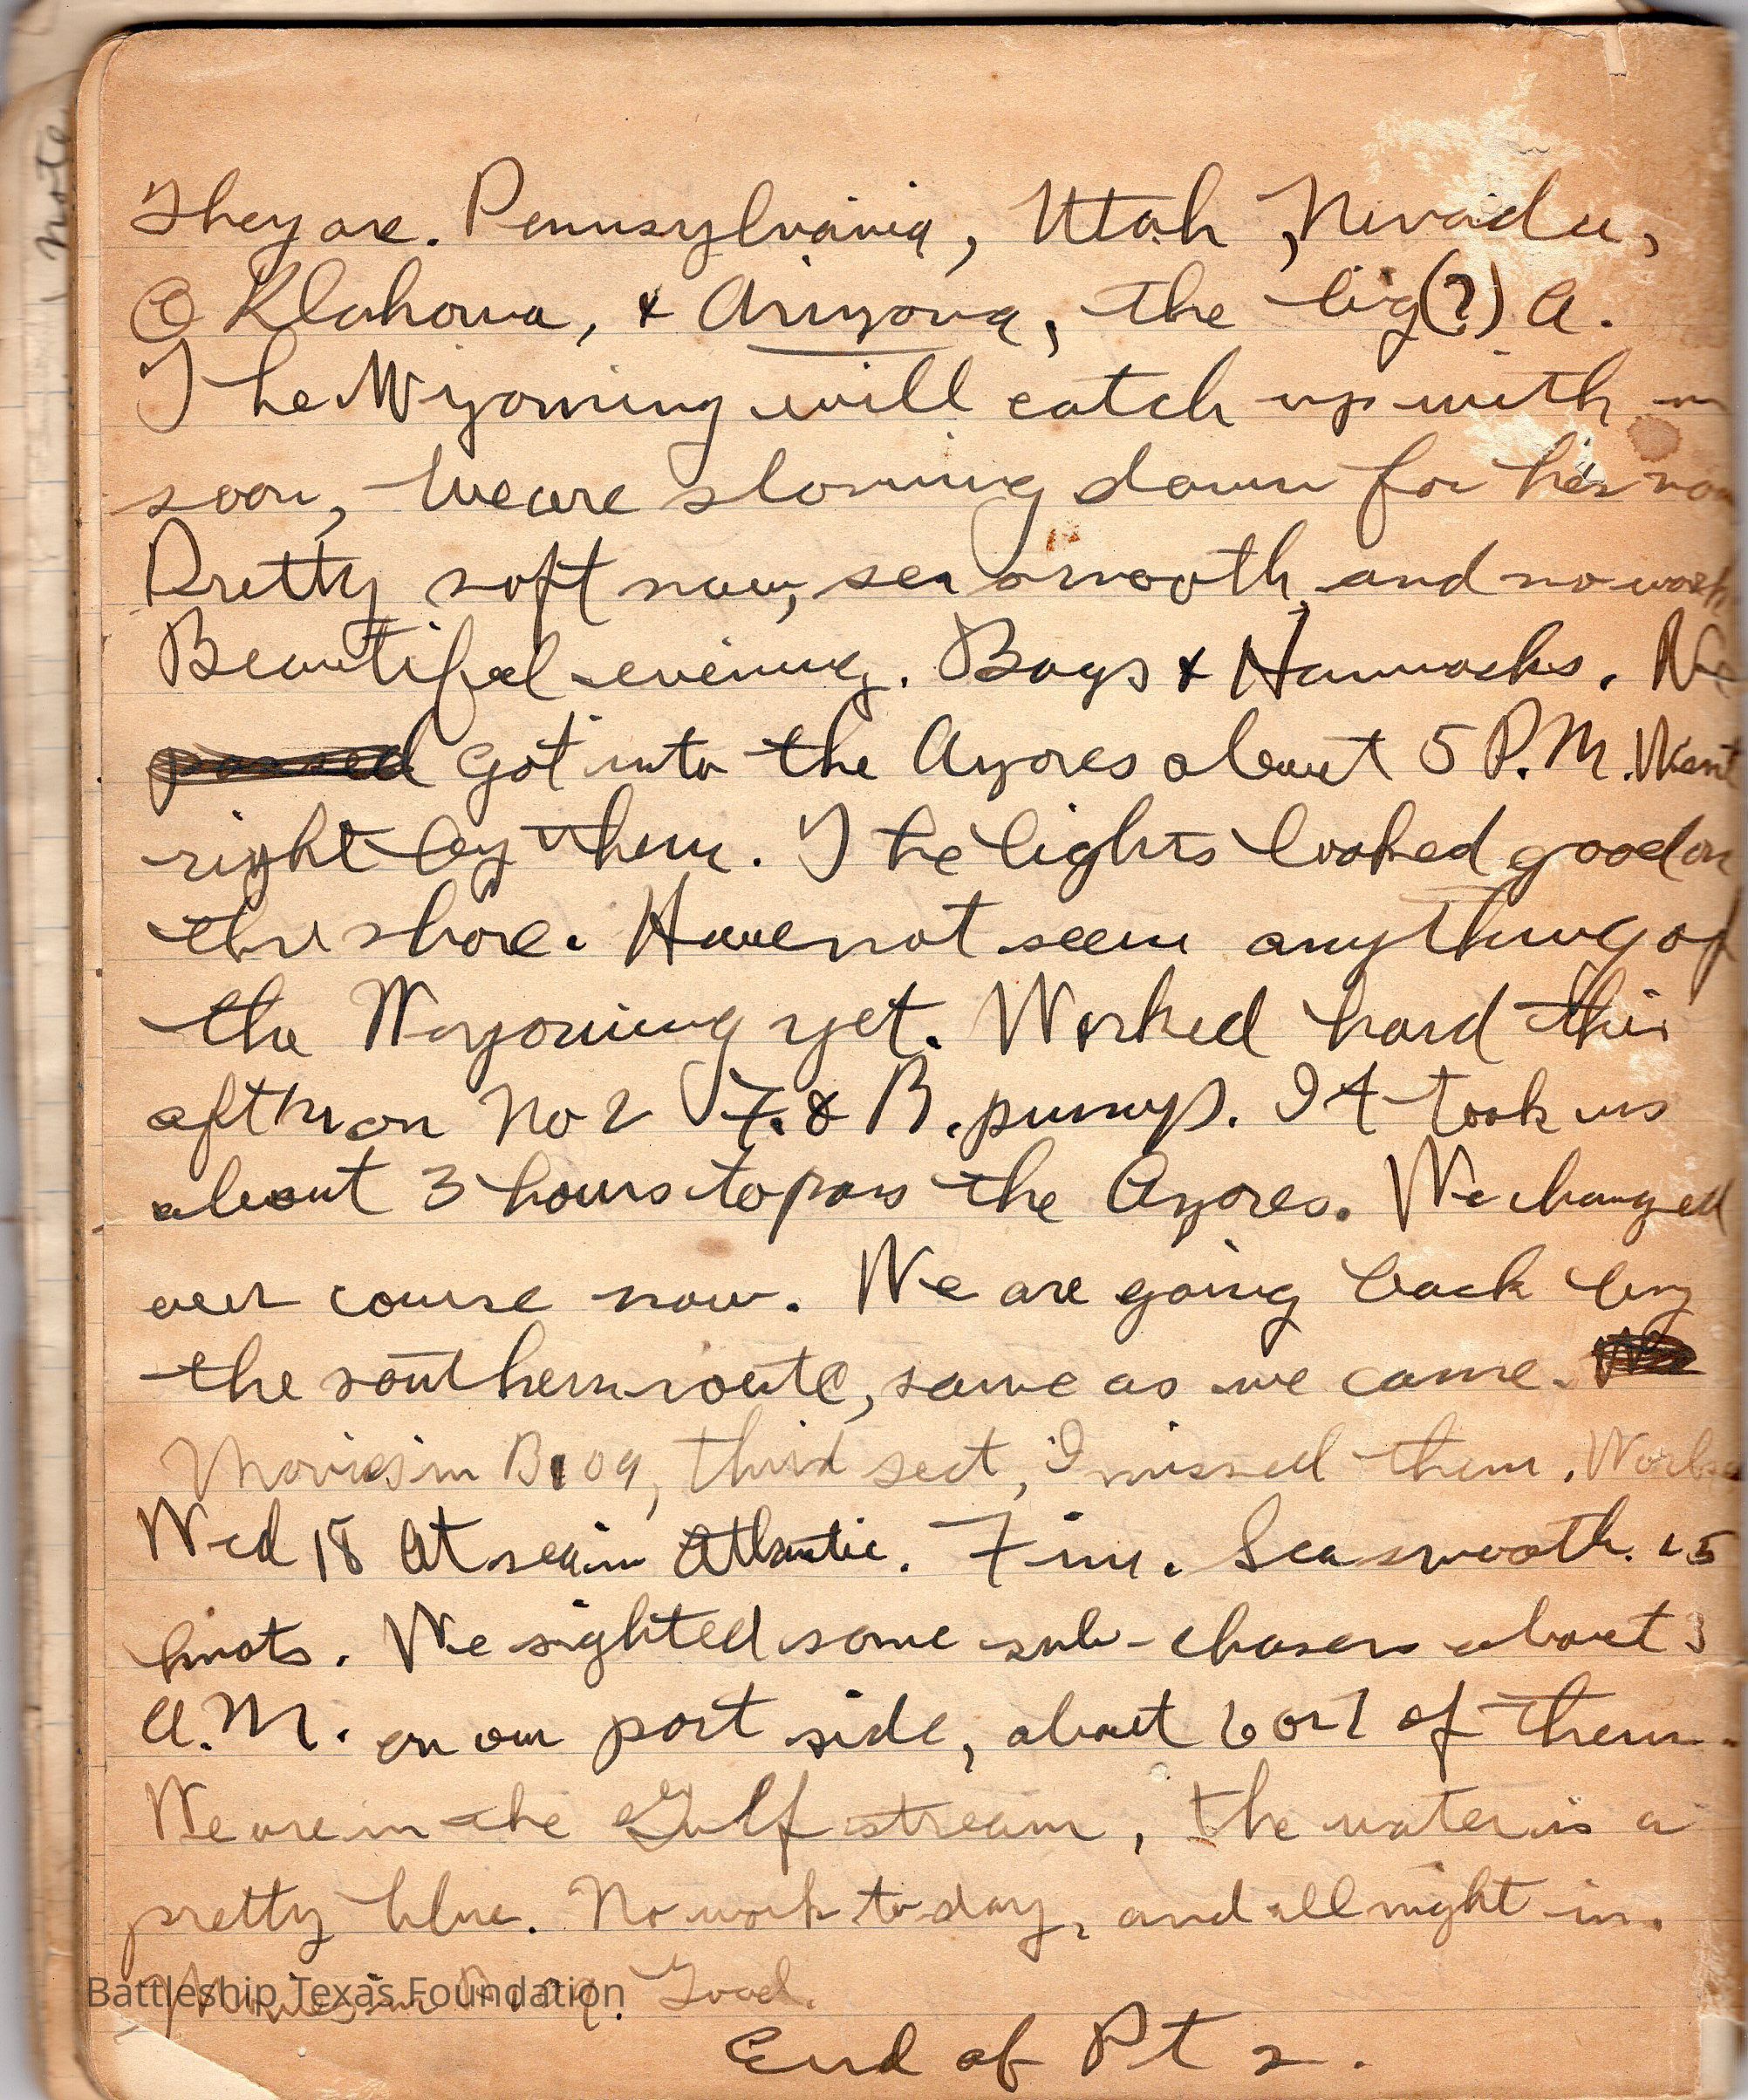 They are. Pennsylvania, Utah, Nevada,
Oklahoma, & Arizona, the big(?) A.
The Wyoming will catch up with
soon, We are slowing down for her now
Pretty soft now, sea smooth, and no work
Beautiful evening. Bags & Hammocks. We
passed got into the Azores about 5 P.M. Went
right by them. The lights looked good on
the shore. Have not seen anything of
the Wyoming yet. Worked hard this
aftn on No 2 F. & B. pump. It took us
about 3 hours to pass the Azores. We changed
our course now. We are going back by
the southern route, same as we came.
Movies in B109, third sect, I missed them. Worked
Wed 18 At sea in Atlantic. Fine. Sea smooth. 15
knots. We sighted some sub-chasers about 3
A.M. on our port side, about 6 or 7 of them.
We are in the Gulf stream, the water is a
pretty blue. No work to-day, and all night in.
Movies in Good.
Battleship Texas Foundation
End of Pt 2.
note